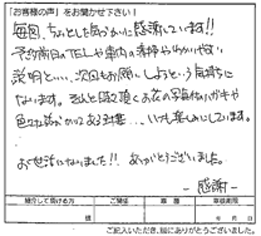 「お客様の声」をお聞かせ下さい！
毎回、ちょっとした気づかいに感謝しています!!
予約前日のTELや車内の清掃やわかりやすい
説明といい、次回もお願いしようという気持ちに
なります。そんと時々頂くお花の写真付ハガキや
色々な気づかってある対応...、いつも楽しみにしています。
お世話になりました!! ありがとうございました。
-感謝-
紹介して頂ける方
ご関係
車種
車検時期
様
年 月 日
ご記入いただき、誠にありがとうございました。